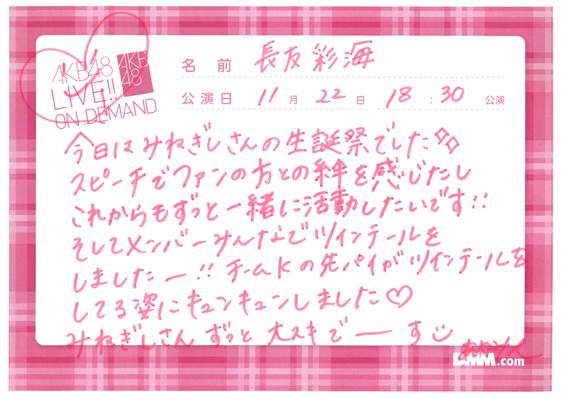 AKB48
LIVE!!
ON DEMAND
AKB
48
名前 長友彩海
公演日 11月22日 18:30 公演
今日はみねぎしさんの生誕祭でした
スピーチでファンの方との絆を感じたし
これからもずっと一緒に活動したいです!!
そしてメンバーみんなでツインテールを
しましたー!! チームKの先パイがツインテールを
してる姿にキュンキュンしました♡
みねぎしさん ずっと 大スキでーーす
DMM.com